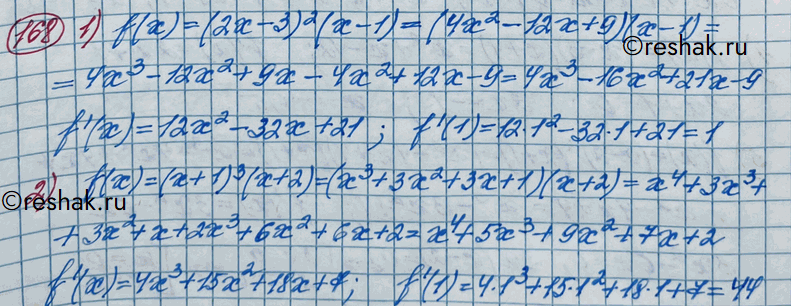 168 1) f(x) = (2x-3)²(x-1) = (4x²-12x+9)(x-1) =
©reshak.ru
= 4x³-12x²+9x-4x²+12x-9=4x³-16x²+21x-9
f'(x) = 12x²-32x+21; f'(1)=12·1²-32·1+21=1
2) f(x)=(x+1)³(x+2)=(x³+3x²+3x+1)(x+2)=x⁴+3x³+
©reshak.ru
+3x²+x+2x³+6x²+6x+2=x⁴+5x³+9x²+7x+2
f'(x)=4x³+15x²+18x+7; f'(1)=4·1³+15·1²+18·1+7=44